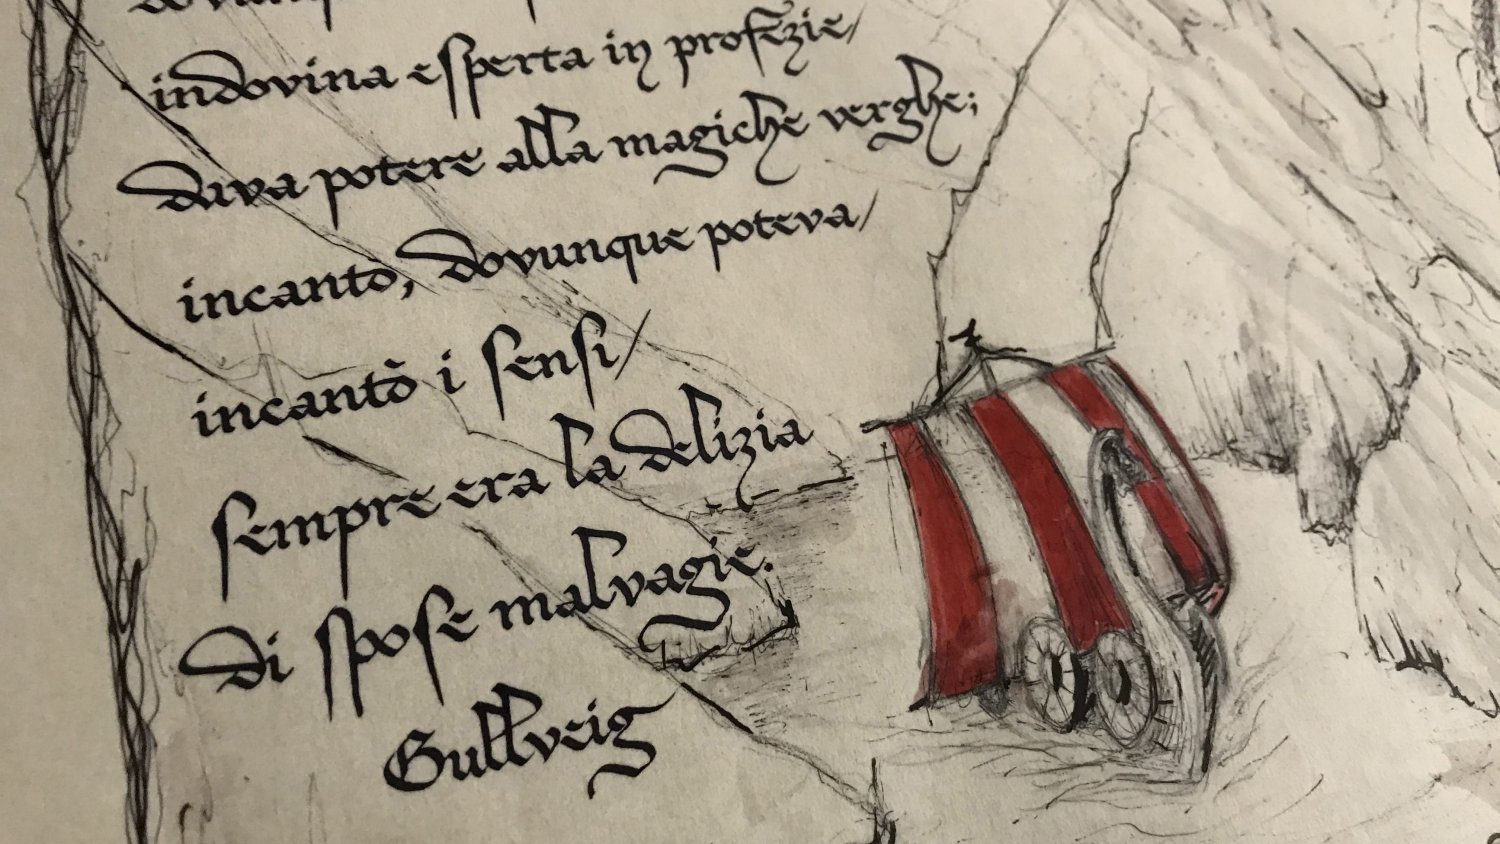 dovunque
indovina esperta in profezie/
dava potere alla magiche verghe;
incantò, dovunque poteva/
incantò i sensi/
sempre era la delizia
di spose malvagie.
Gullveig